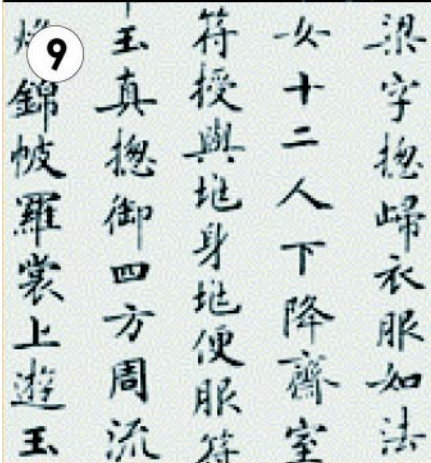 梁字揔歸衣服如法
女十二人下降齋室
符授與兆身兆便服符
玉真揔御四方周流
錦帔羅裳上遊玉